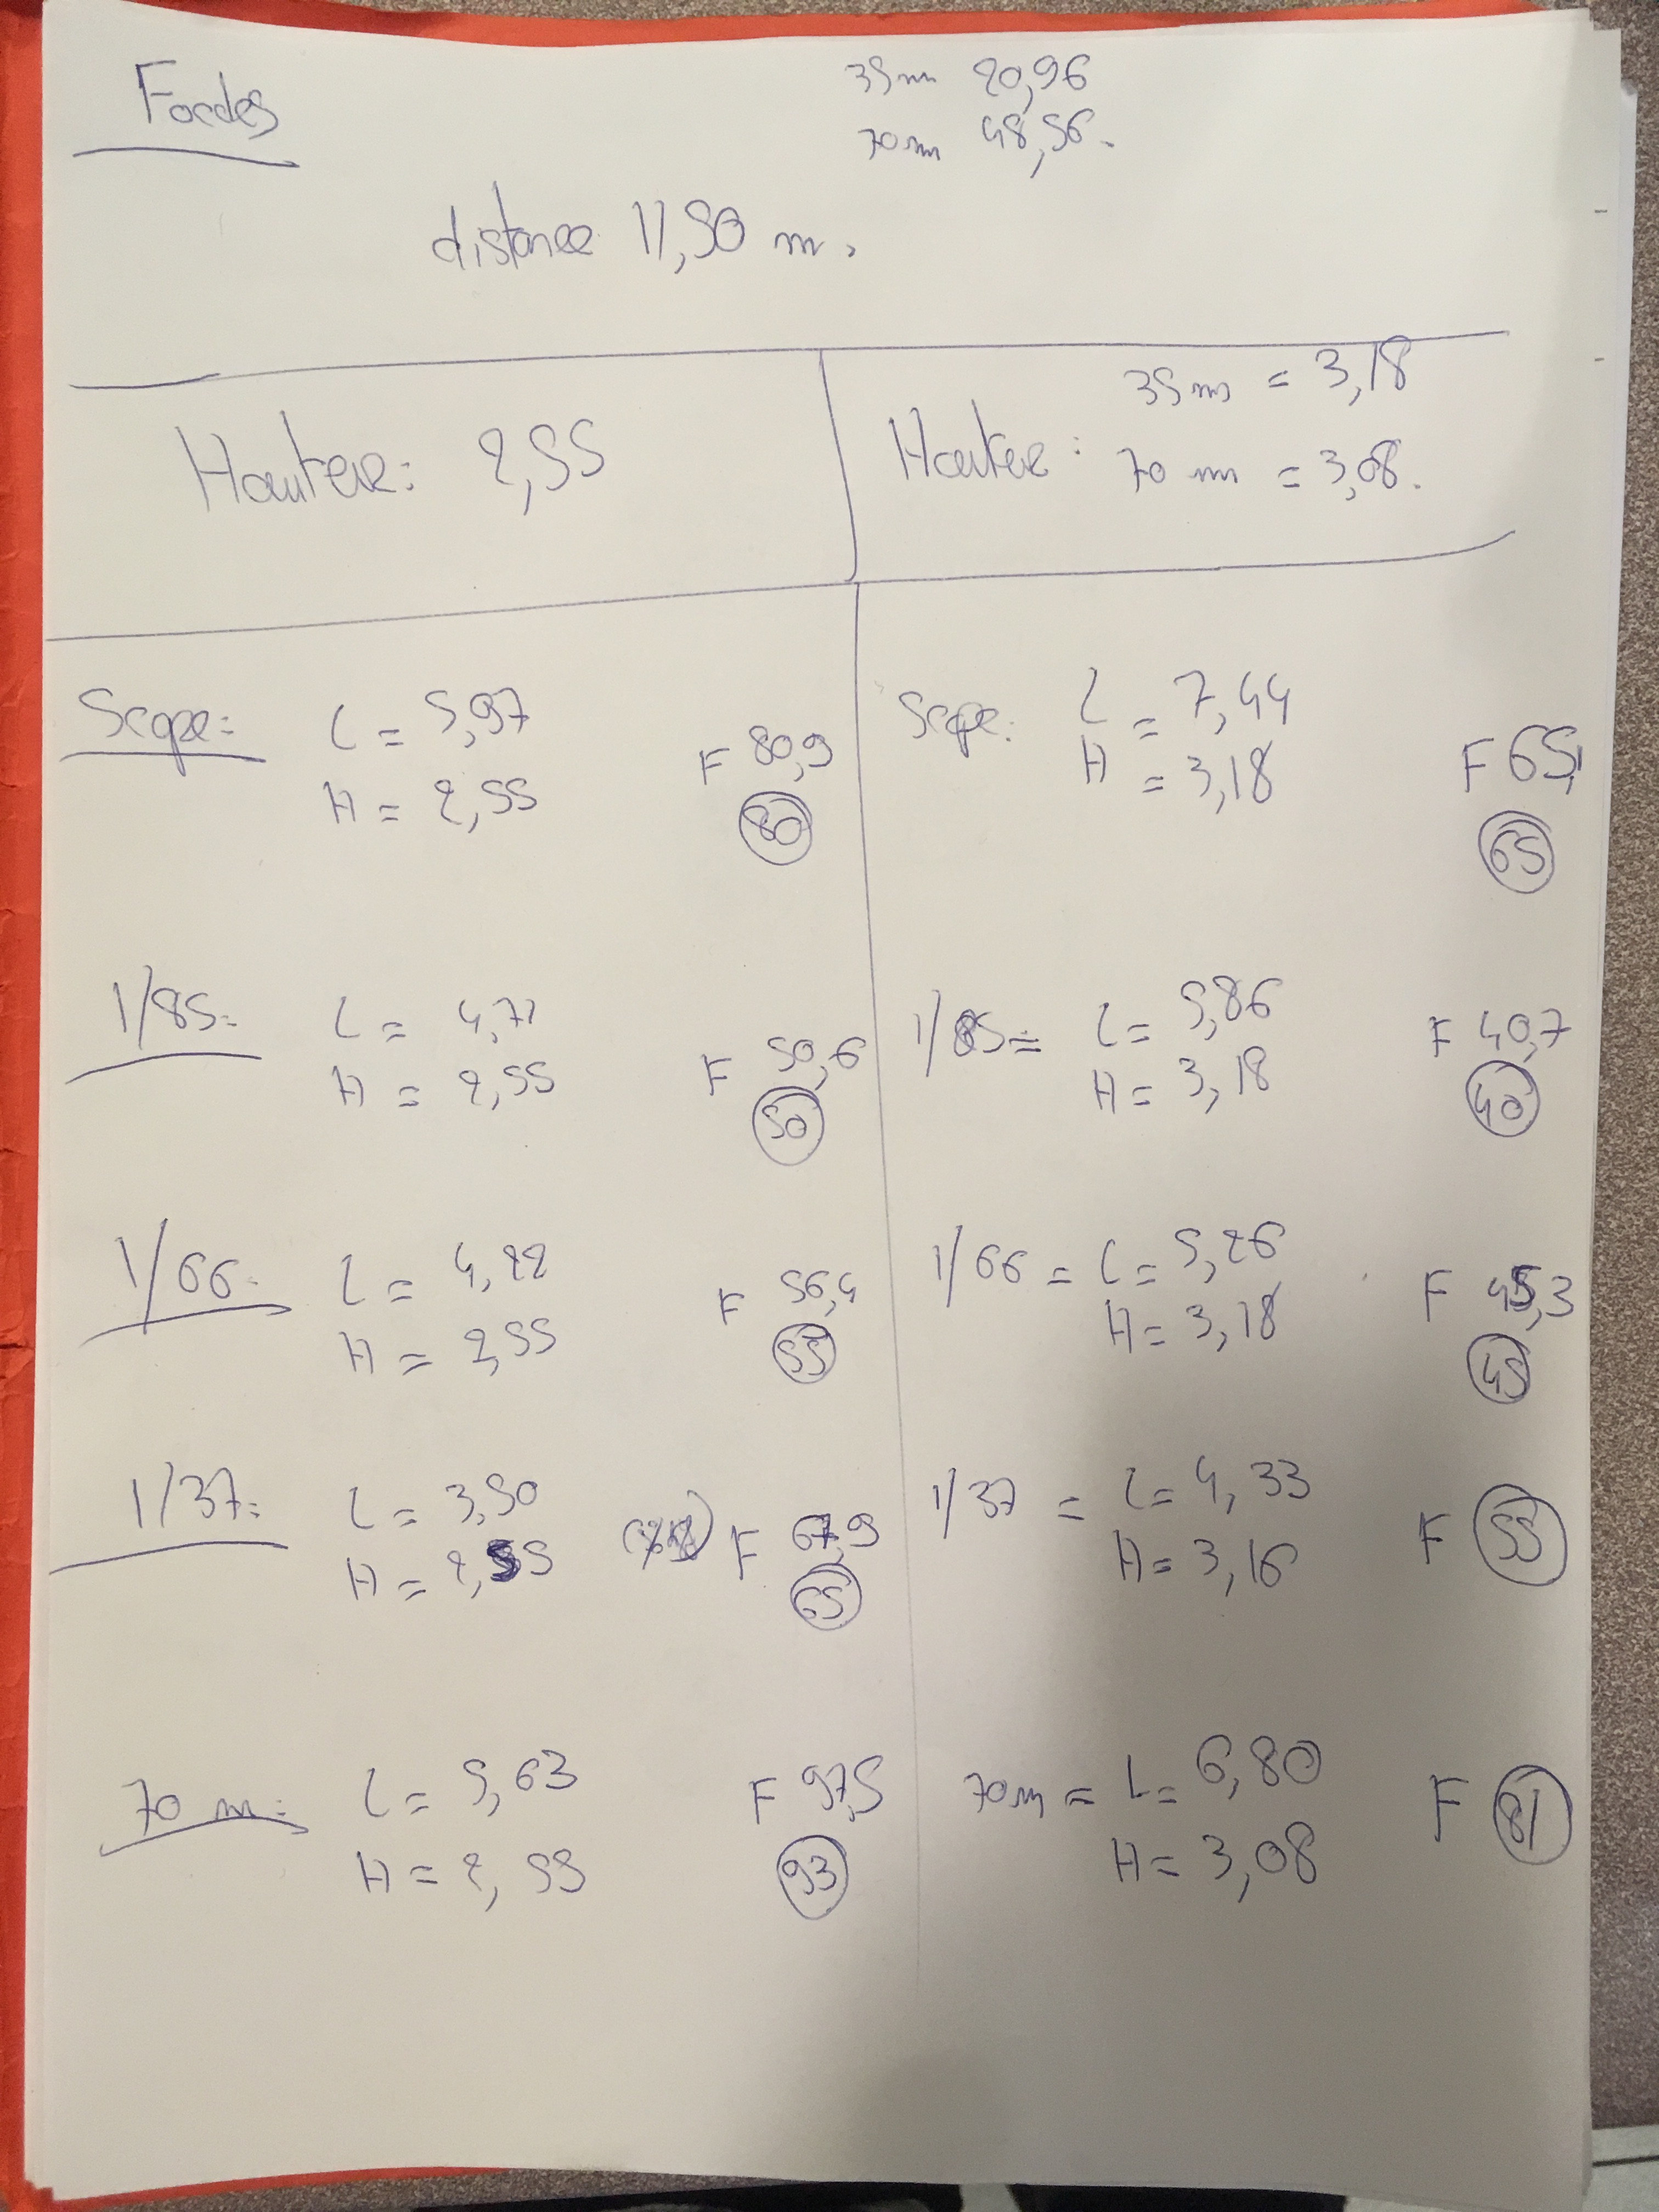 Focales
35mm 20,96
70mm 48,56.
distance 11,50 m.
Hauteur: 2,55
Hauteur: 35mm = 3,18
70 mm = 3,08.
Scope: L = 5,97
H = 2,55
F 80,9
80
Scope: L = 7,44
H = 3,18
F 65,1
65
1/85: L = 4,71
H = 2,55
F 50,6
50
1/85 = L = 5,86
H = 3,18
F 40,7
40
1/66: L = 4,22
H = 2,55
F 56,4
55
1/66 = L = 5,26
H = 3,18
F 45,3
45
1/37: L = 3,50
H = 2,55
F 67,9
65
1/37 = L = 4,33
H = 3,16
F 55
70 mm: L = 5,63
H = 2,55
F 97,5
93
70mm = L = 6,80
H = 3,08
F 81